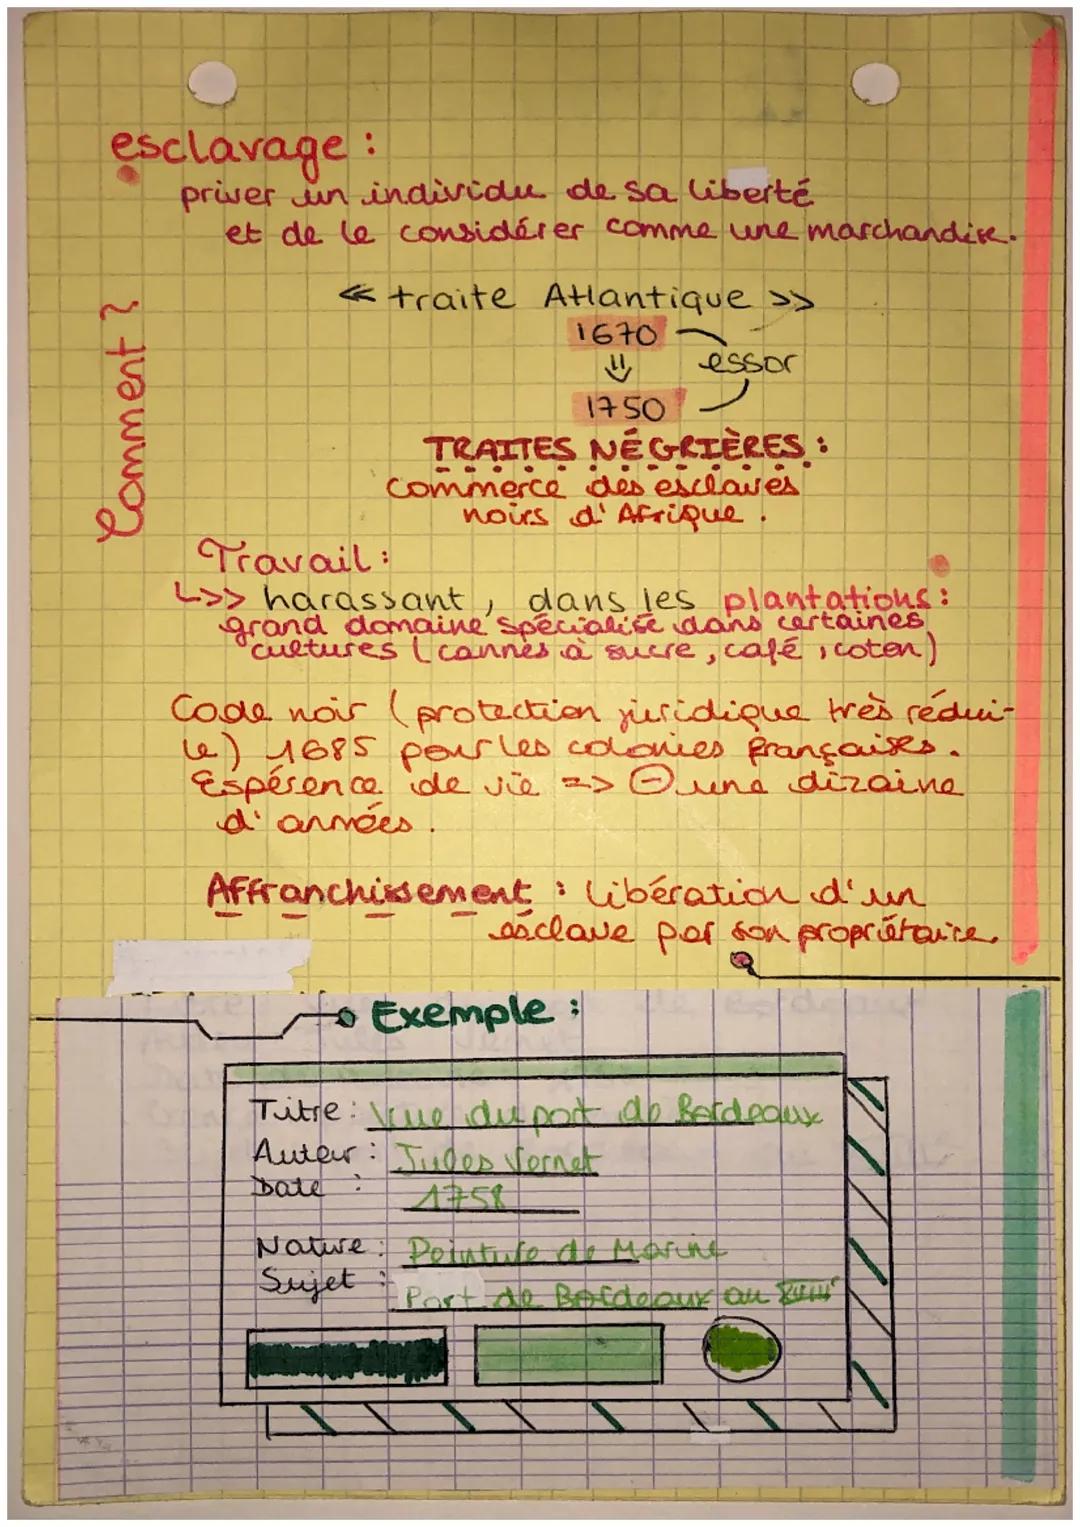 esclavage :
priver un individu de sa liberté
et de le considérer comme une marchandise.
Comment ?
« traite Atlantique »
1670
essor
1750
TRAITES NÉGRIÈRES :
commerce des esclaves
noirs d'Afrique.
Travail :
harassant, dans les plantations :
grand domaine spécialisé dans certaines
cultures (cannes à sucre, café, coton)
Code noir (protection juridique très rédui-
te) 1685 pour les colonies françaises.
Espérence de vie => ⊖ une dizaine
d'années.
Affranchissement : libération d'un
esclave par son propriétaire.
Exemple :
Titre : Vue du port de Bordeaux
Auteur : Jules Vernet
Date : 1758
Nature : Peinture de Marine
Sujet : Port de Bordeaux au